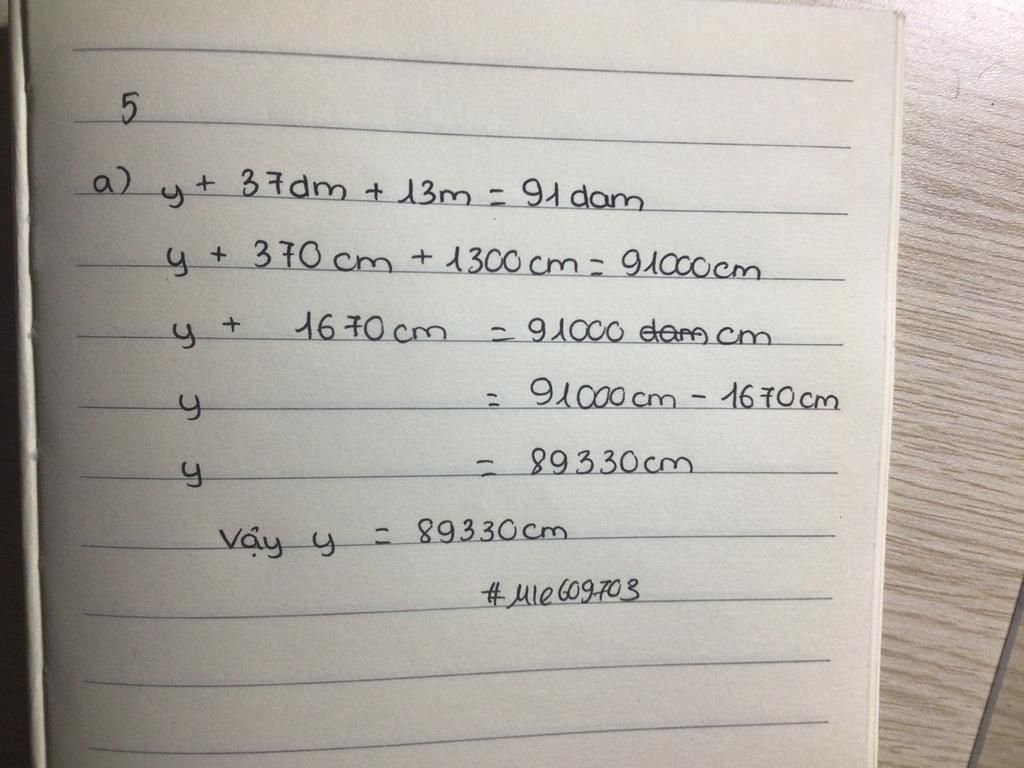 5
a) y + 37dm + 13m = 91dam
y + 370cm + 1300cm = 91000cm
y + 1670cm = 91000 dam cm
y = 91000cm - 1670cm
y = 89330cm
Vậy y = 89330cm
#Mie609703